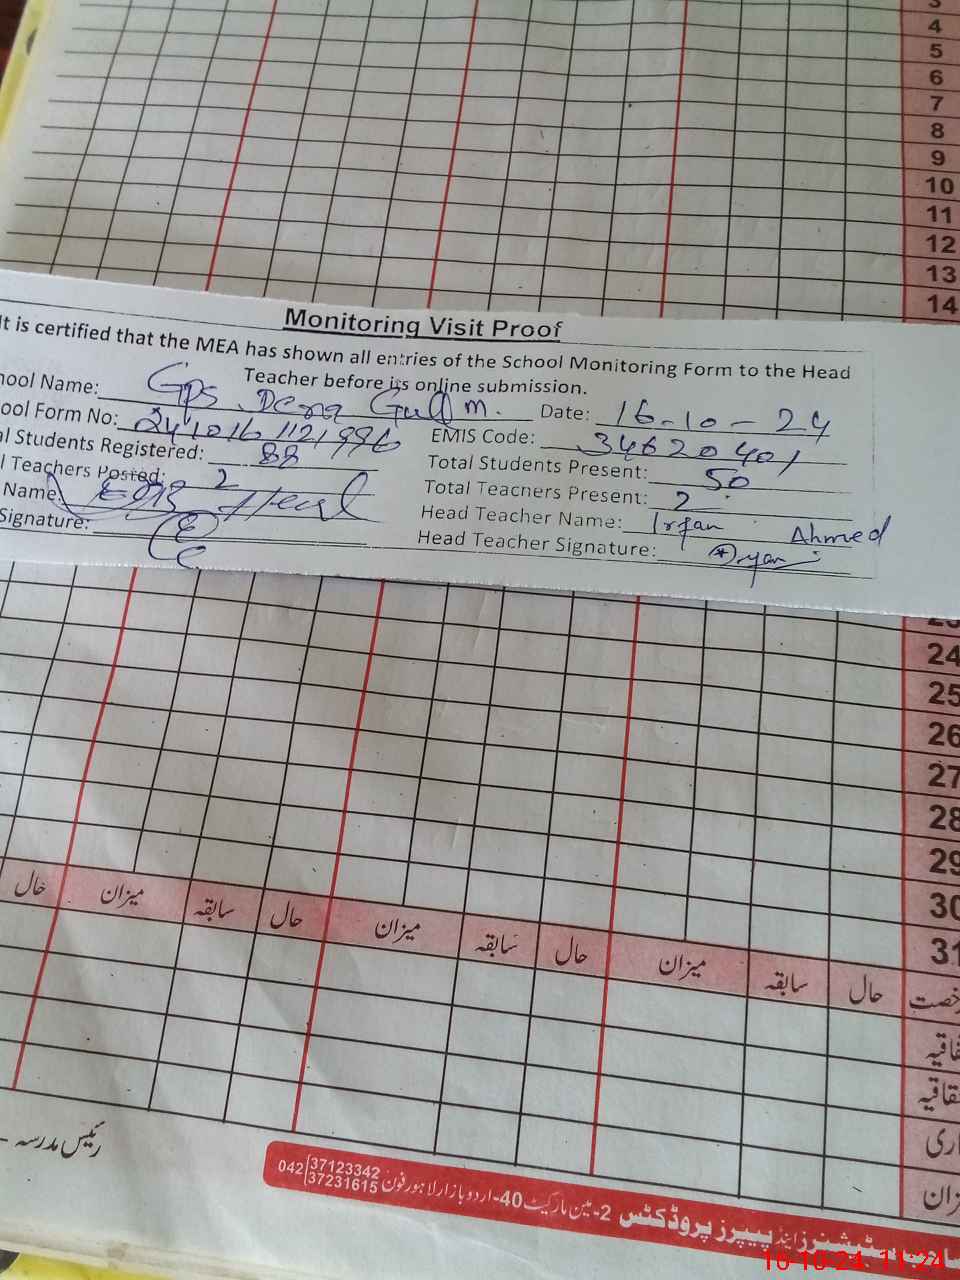 3
4
5
6
7
8
9
10
11
12
13
14
Monitoring Visit Proof
It is certified that the MEA has shown all entries of the School Monitoring Form to the Head
Teacher before its online submission.
hool Name: Gps Dera Gull m. Date: 16-10-24
ool Form No: EMIS Code: 34620401
al Students Registered: 88 Total Students Present: 50
l Teachers Posted: 2 Total Teachers Present: 2
Name: Head Teacher Name: Irfan Ahmed
Signature: Head Teacher Signature:
24
25
26
27
28
29
30
31
حال سابقہ میزان حال سابقہ میزان حال سابقہ میزان حال
رئیس مدرسہ
پیپرز پروڈکٹس 2-مین مارکیٹ 40-اردو بازار لاہور فون 042 37123342
37231615
16-10-24, 11:24